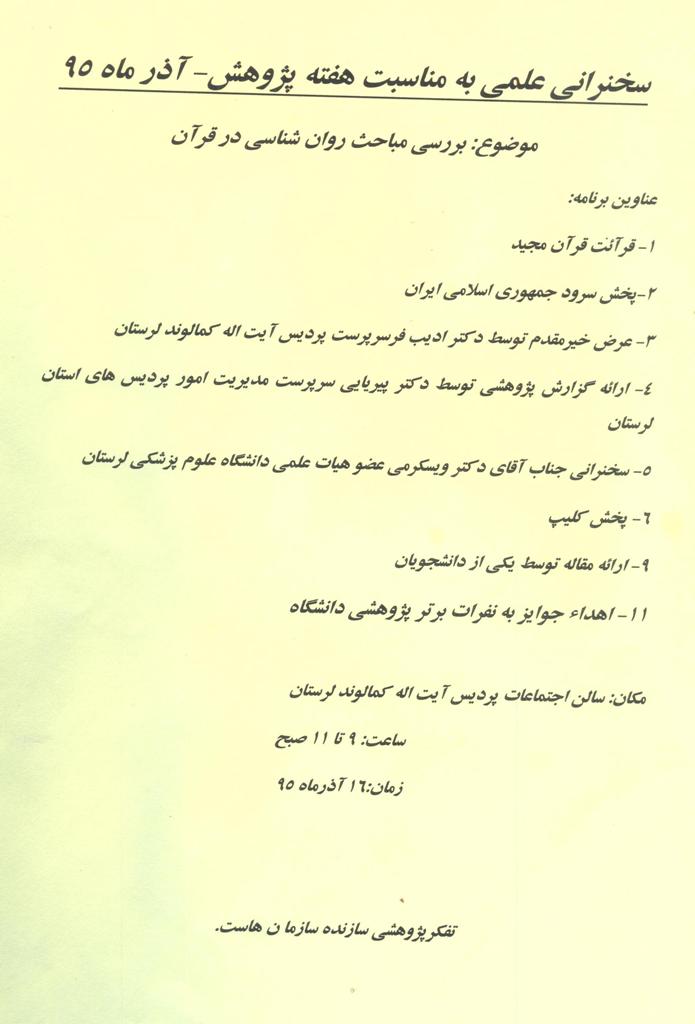 سخنرانی علمی به مناسبت هفته پژوهش- آذر ماه ۹۵
موضوع: بررسی مباحث روان شناسی در قرآن
عناوین برنامه:
۱- قرآئت قرآن مجید
۲-پخش سرود جمهوری اسلامی ایران
۳- عرض خیرمقدم توسط دکتر ادیب فرسرپرست پردیس آیت اله کمالوند لرستان
۴- ارائه گزارش پژوهشی توسط دکتر پیریایی سرپرست مدیریت امور پردیس های استان
لرستان
۵- سخنرانی جناب آقای دکتر ویسکرمی عضو هیات علمی دانشگاه علوم پزشکی لرستان
۶- پخش کلیپ
۹- ارائه مقاله توسط یکی از دانشجویان
۱۱- اهداء جوایز به نفرات برتر پژوهشی دانشگاه
مکان: سالن اجتماعات پردیس آیت اله کمالوند لرستان
ساعت: ۹ تا ۱۱ صبح
زمان:۱۶ آذرماه ۹۵
تفکرپژوهشی سازنده سازما ن هاست.